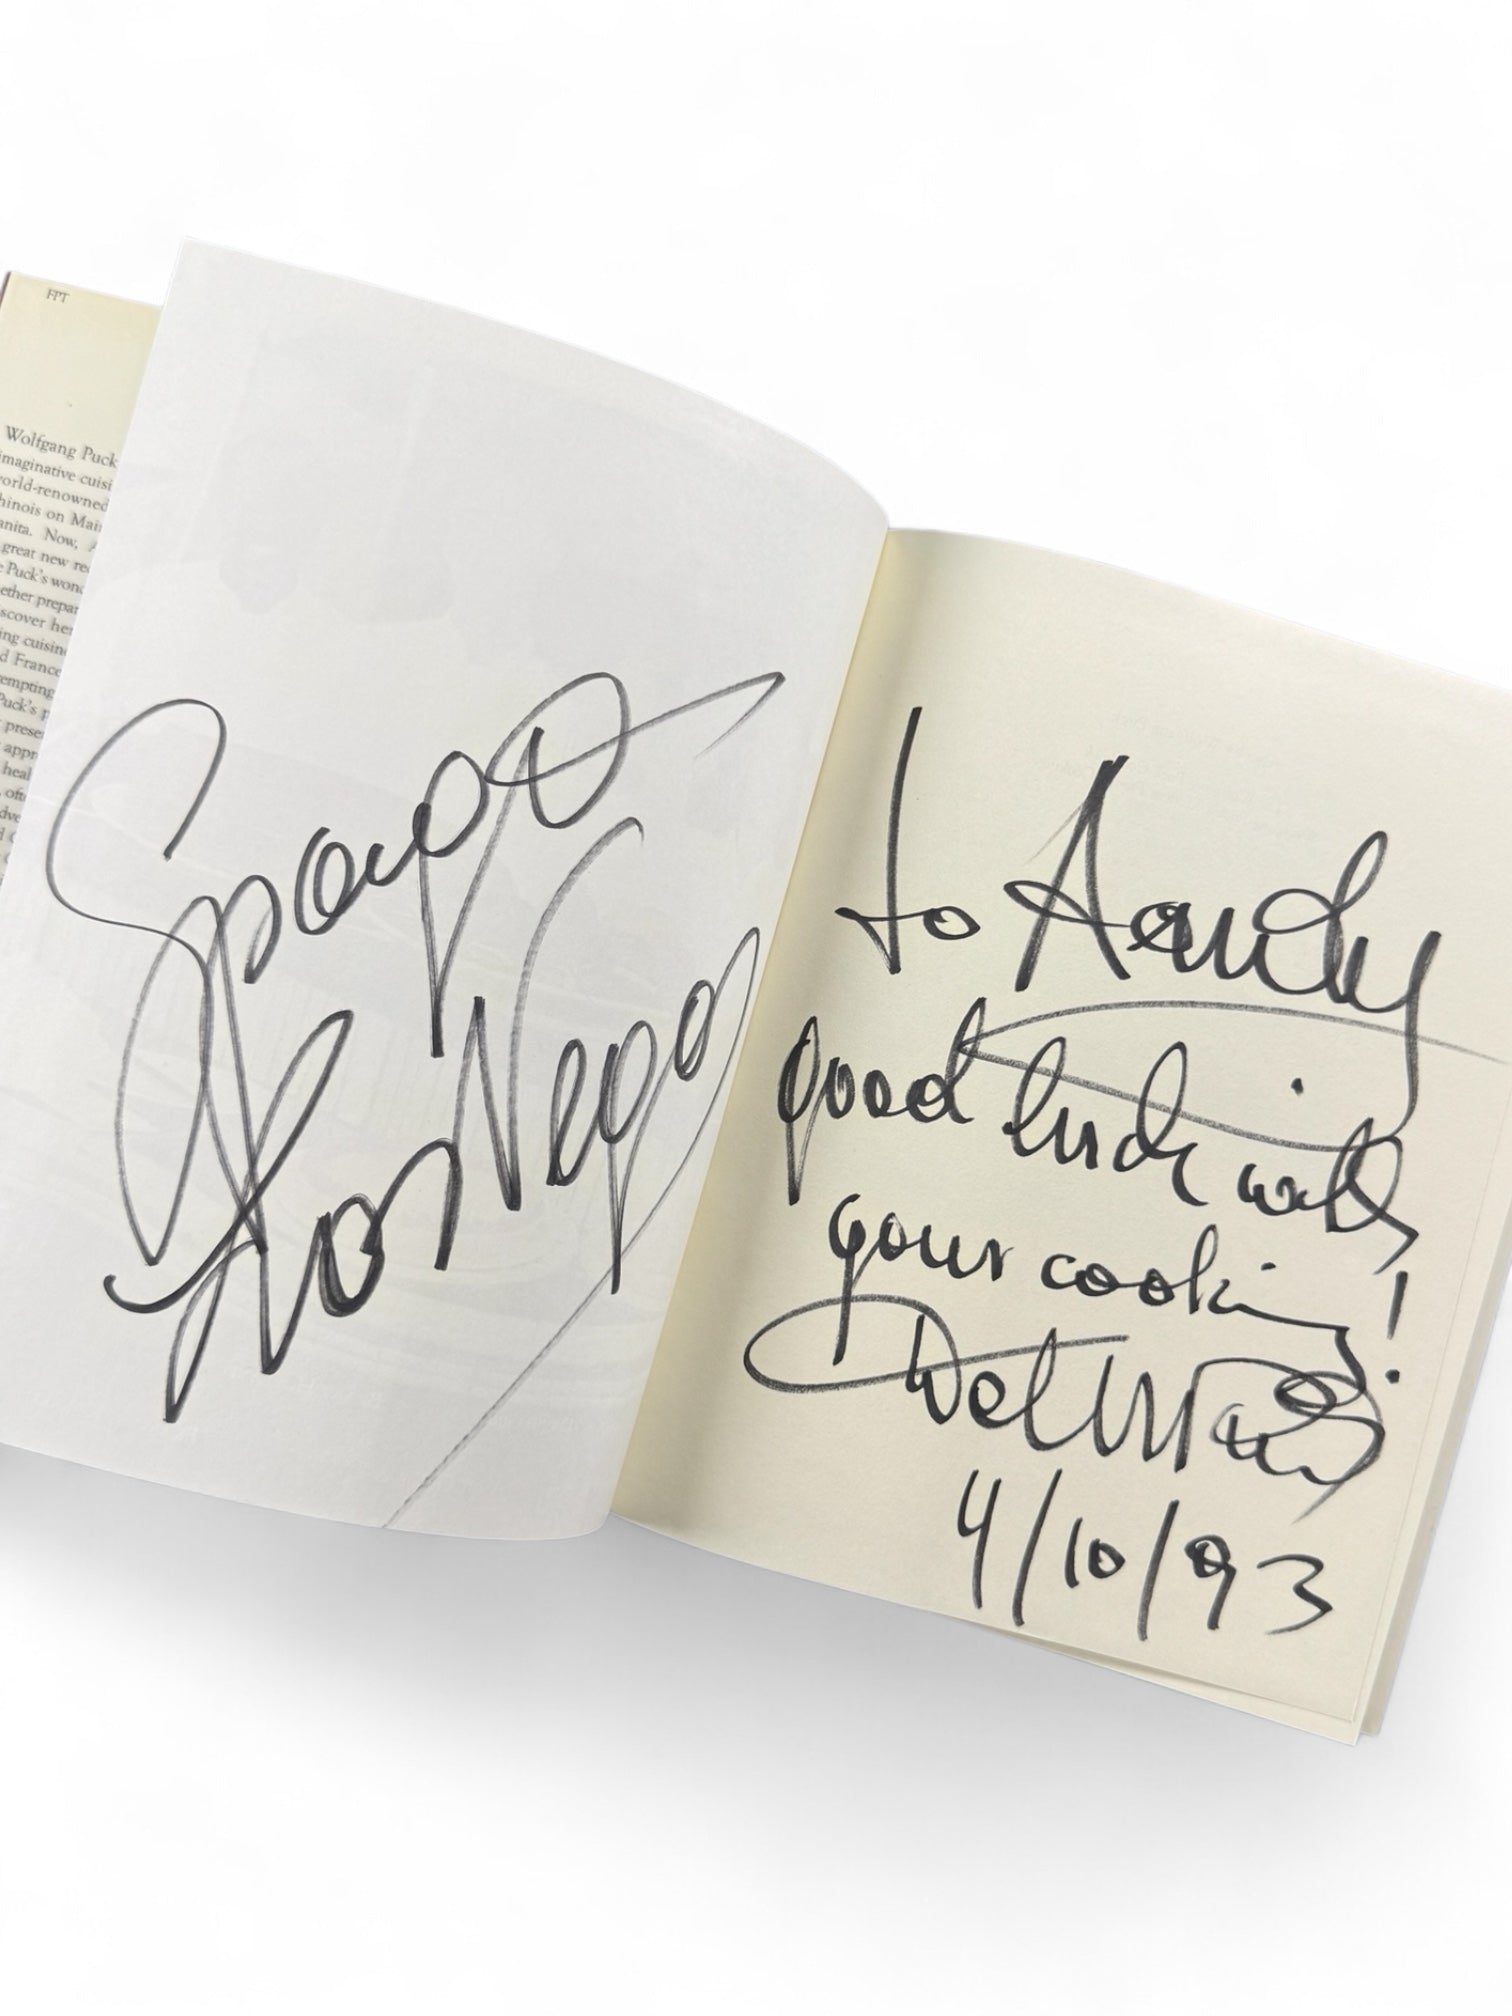 FPT
Wolfgang Puck
imaginative cuisi
orld-renowned
hinois on Mai
anita. Now, A
great new re
e Puck's wond
ether prepar
scover he
ing cuisin
d France
empting
Puck's p
prese
appr
heal
, oft
dve
Spago
Las Vegas
to Aandy
good luck with
your cooking!
Wolf
4/10/93